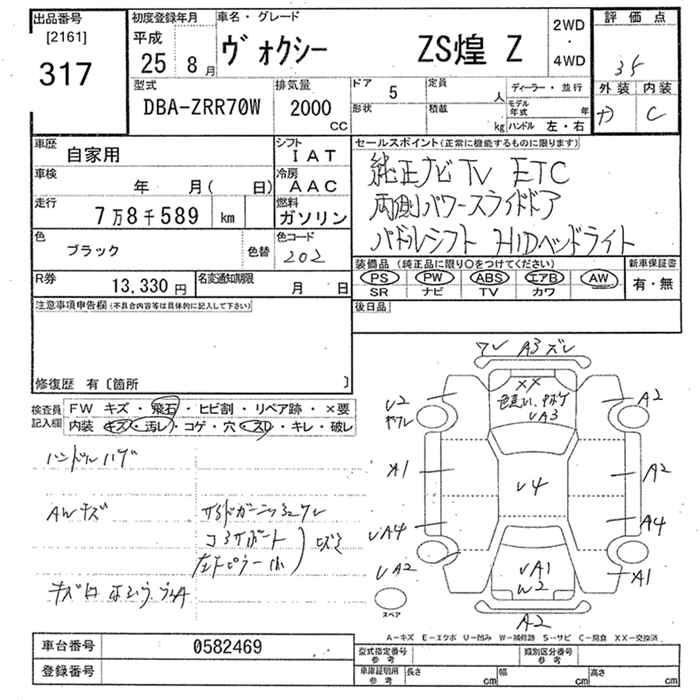 出品番号 初度登録年月 車名・グレード 評価点
[2161] 平成 ヴォクシー ZS煌 Z 2WD・4WD
317 25年 8月 35
型式 排気量 ドア 5 定員 人 ディーラー・並行 外装 内装
DBA-ZRR70W 2000 CC 形状 積載 kg モデル年式 年 C
ハンドル 左・右
車歴 自家用 シフト IAT セールスポイント(正常に機能するものに限ります)
車検 年 月( 日) 冷房 AAC 純正ナビ TV ETC
走行 7万8千589 km 燃料 ガソリン 両側パワースライドドア
色 ブラック 色替 色コード 202 パドルシフト HIDヘッドライト
R券 13,330円 名変通知期限 月 日 装備品(純正品に限り○をつけてください) 新車保証書
PS PW ABS エアB AW 有・無
SR ナビ TV カワ
注意事項申告欄(不具合内容等は具体的に記入して下さい) 後日品
修復歴 有〔箇所 〕
検査員記入欄 FW キズ・飛石・ヒビ割・リペア跡・×要
内装 キズ・汚レ・コゲ・穴・スレ・キレ・破レ
ワレ A3 ズレ
××
U2 A2
UA3
ハンドルハゲ
A1 U4 A2
AWキズ
UA4 A4
コアサポート
UA2 UA1 A1
W2
スペア A2
A-キズ E-エクボ U-凹み W-補修跡 S-サビ C-腐食 XX-交換済
車台番号 0582469 型式指定番号 参考 類別区分番号 参考
登録番号 車庫証明用 参考 長さ cm 幅 cm 高さ cm